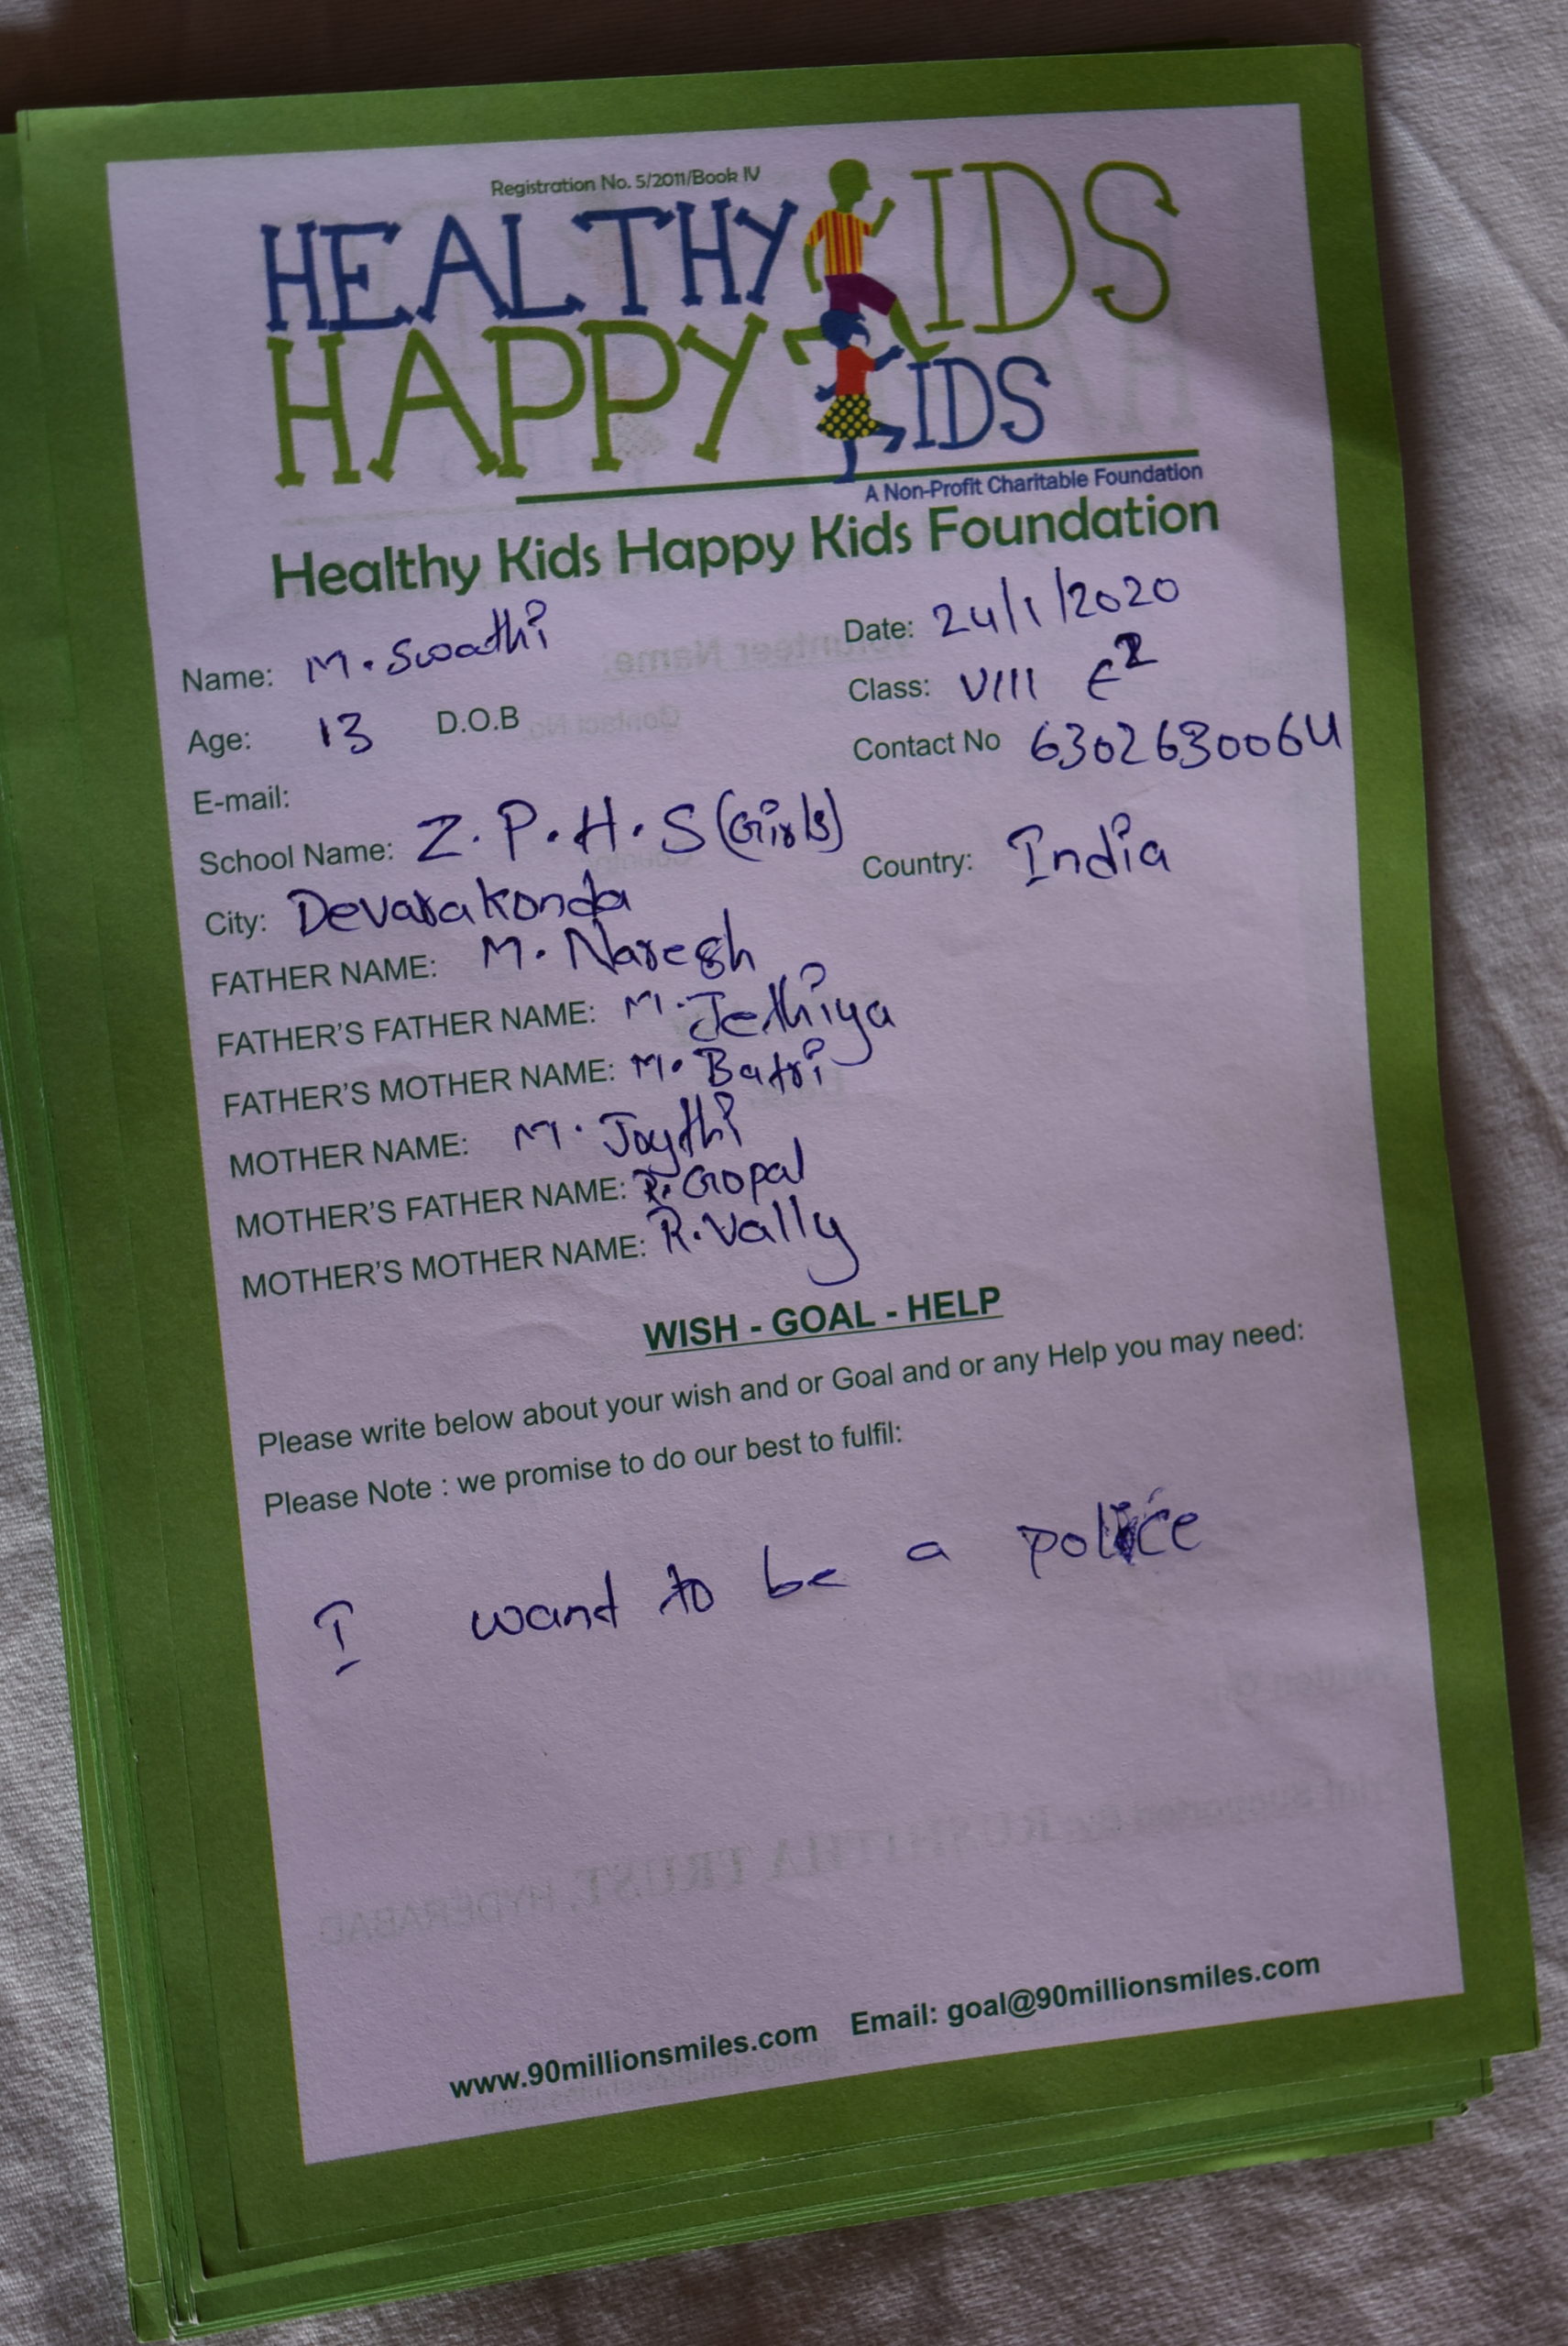 Registration No. 5/2011/Book IV
HEALTHY KIDS
HAPPY KIDS
A Non-Profit Charitable Foundation
Healthy Kids Happy Kids Foundation
Name: M. Swathi Date: 24/1/2020
Age: 13 D.O.B Class: VIII
E-mail: Contact No 6302630064
School Name: Z.P.H.S (Girls)
City: Devarakonda Country: India
FATHER NAME: M. Naresh
FATHER'S FATHER NAME: M. Jethiya
FATHER'S MOTHER NAME: M. Batri
MOTHER NAME: M. Joythi
MOTHER'S FATHER NAME: R. Gopal
MOTHER'S MOTHER NAME: R. Vally
WISH - GOAL - HELP
Please write below about your wish and or Goal and or any Help you may need:
Please Note : we promise to do our best to fulfil:
I want to be a police
www.90millionsmiles.com Email: goal@90millionsmiles.com